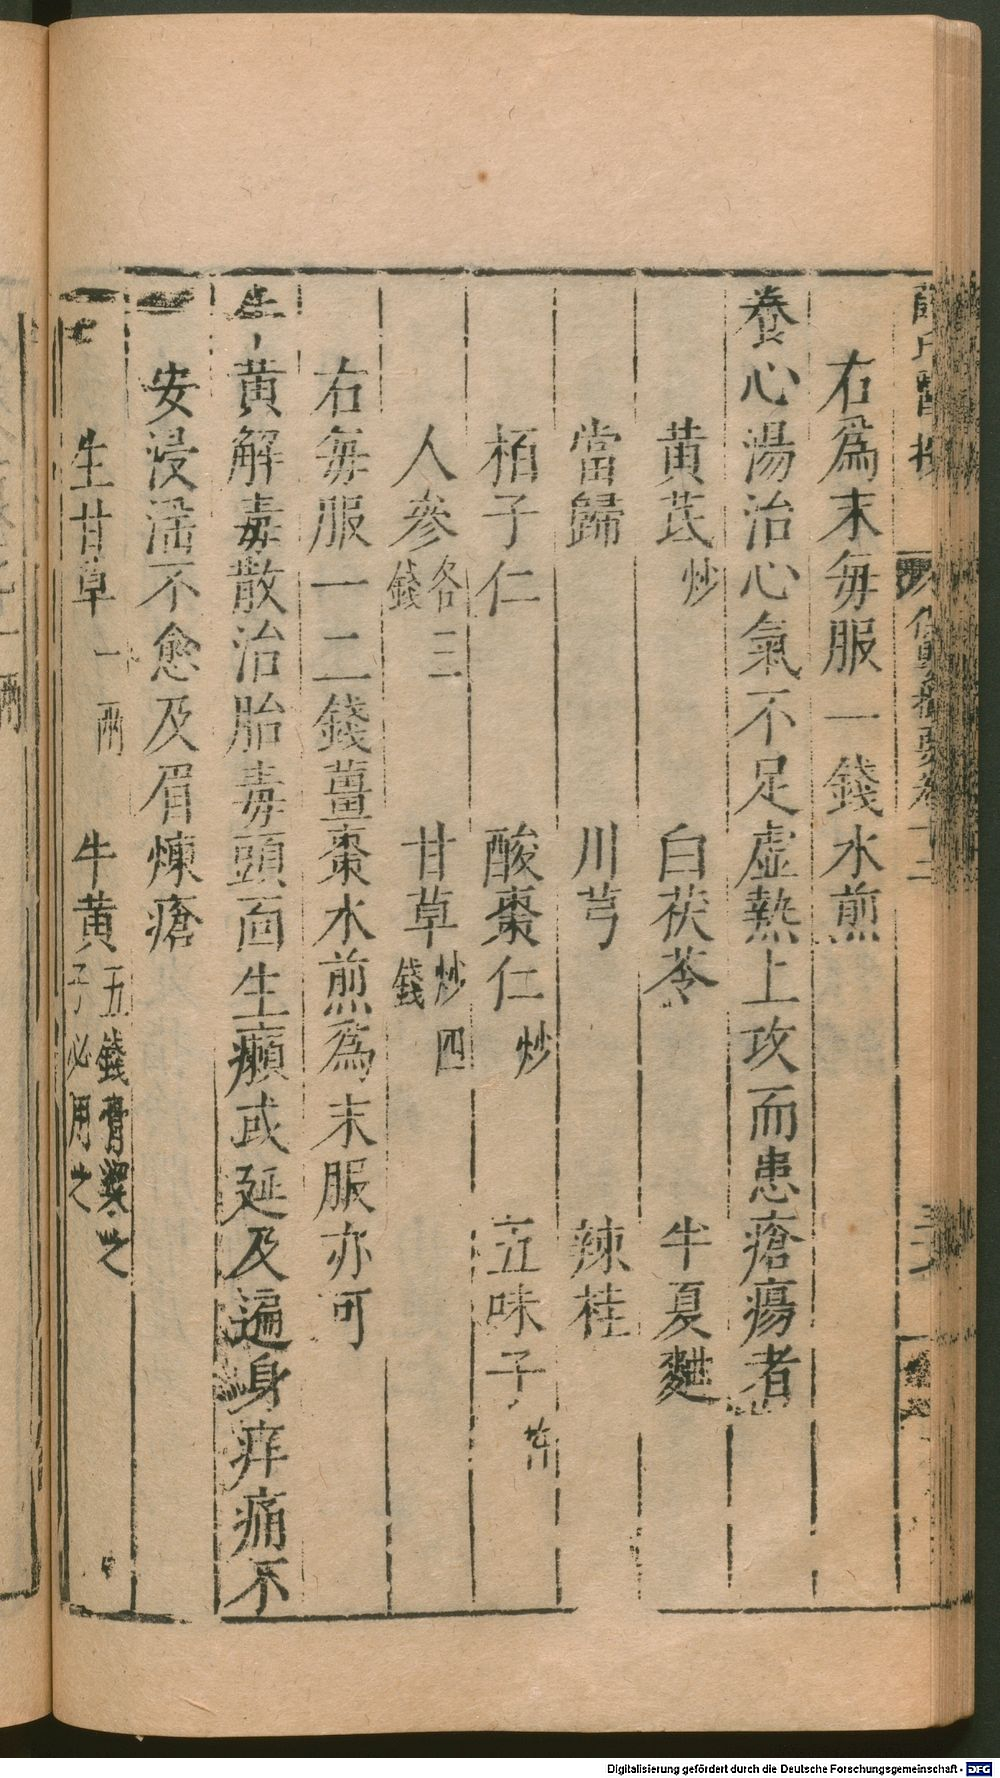 右爲末每服一錢水煎
養心湯治心氣不足虛熱上攻而患瘡瘍者
黃芪炒 白茯苓 半夏麯
當歸 川芎 辣桂
栢子仁 酸棗仁炒 五味子杵
人參各三錢 甘草炒四錢
右每服一二錢薑棗水煎爲末服亦可
牛黃解毒散治胎毒頭面生癩或延及遍身痒痛不
安浸淫不愈及眉煉瘡
生甘草一兩 牛黃五錢膏粱之子必用之
Digitalisierung gefördert durch die Deutsche Forschungsgemeinschaft - DFG